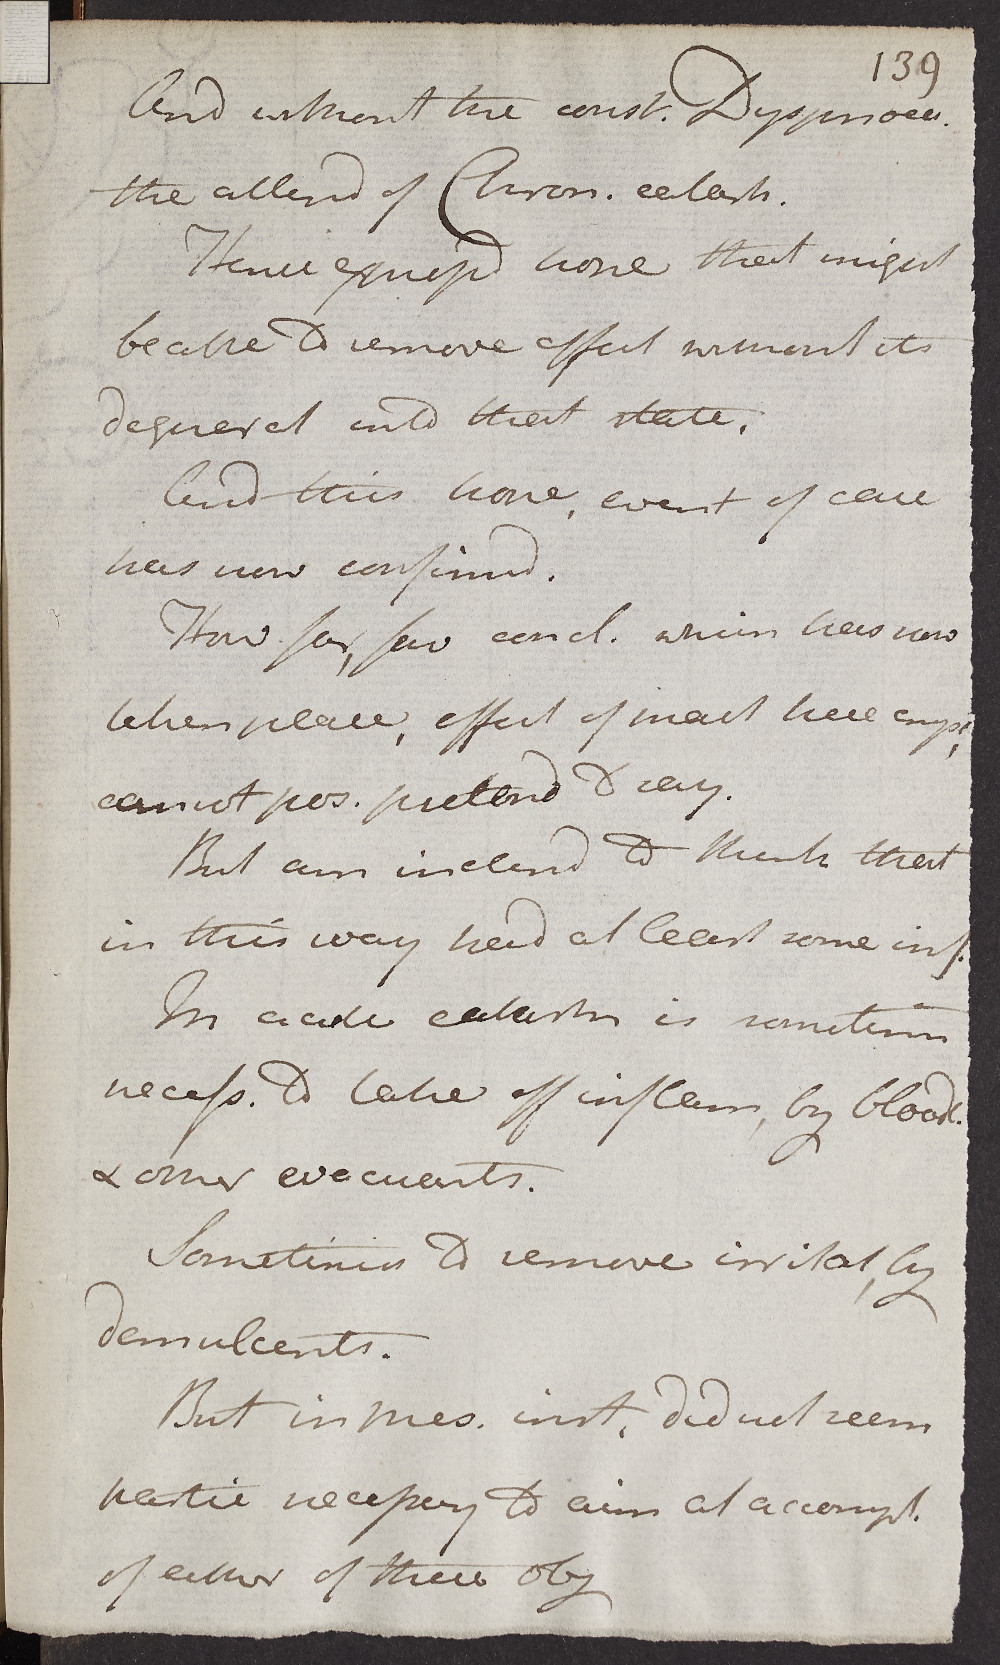 139
And without the const. Dyspnoea.
the attend of Chron. catarh.
Hence expressd hope that might
be able to remove affect without its
degenerat into that state.
And this hope, event of case
has now confirmd.
How far, fav concl. which has now
taken place, effect of meas here empl,
cannot pos. pretend to say.
But am inclend to think that
in this way had at least some inf.
In acute catarhn is sometims
necess. to take off inflam, by bloodl.
& other evacuants.
Sometimes to remove irritat, by
demulcents.
But in pres. inst, did not seem
partic necessary to aim at accompl.
of either of these obj